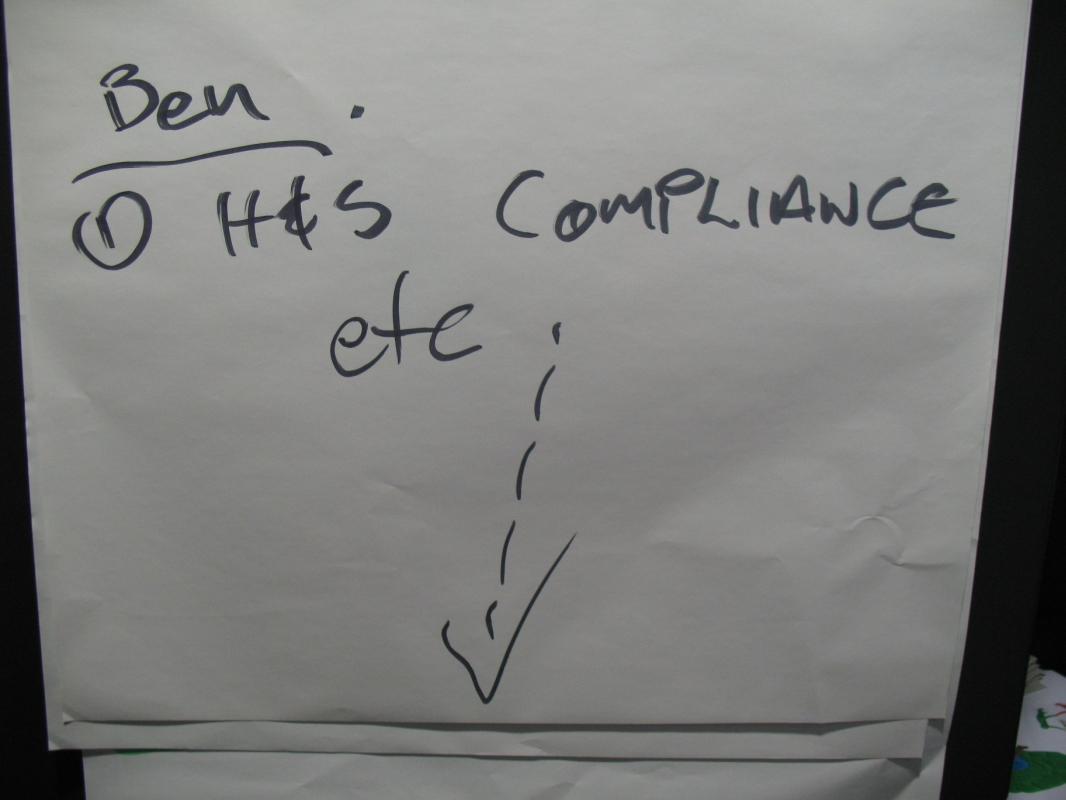 Ben.
① H&S COMPLIANCE
etc.